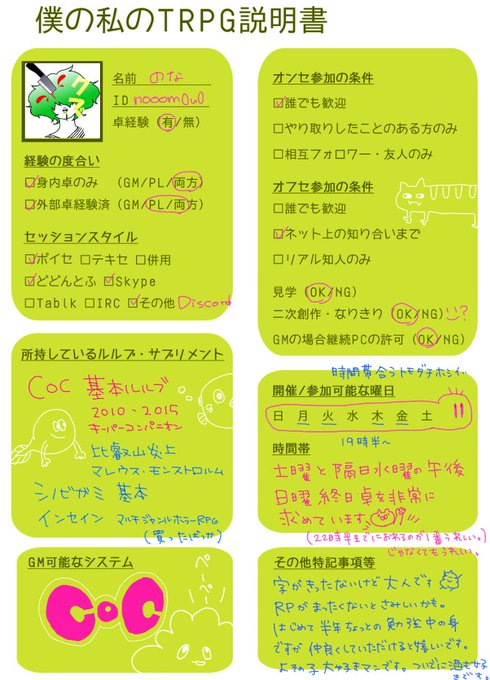 僕の私のTRPG説明書
名前 のな
ID nooom0u0
卓経験 (有/無)
経験の度合い
□身内卓のみ (GM/PL/両方)
□外部卓経験済 (GM/PL/両方)
セッションスタイル
□ボイセ □テキセ □併用
□どどんとふ □Skype
□Tablk □IRC □その他 Discord
所持しているルルブ・サプリメント
CoC 基本ルルブ
2010・2015
キーパーコンパニオン
比叡山炎上
マレウス・モンストロルム
シノビガミ 基本
インセイン マルチジャンルホラーRPG
(買ったばっか)
GM可能なシステム
CoC
ぺーぺー!
オンセ参加の条件
□誰でも歓迎
□やり取りしたことのある方のみ
□相互フォロワー・友人のみ
オフセ参加の条件
□誰でも歓迎
□ネット上の知り合いまで
□リアル知人のみ
見学 (OK/NG)
二次創作・なりきり (OK/NG)
GMの場合継続PCの許可 (OK/NG)
時間帯合うトモダチホシイ
開催/参加可能な曜日
日 月 火 水 木 金 土 !!
19時半~
時間帯
土曜と隔日水曜の午後
日曜終日卓を非常に
求めています。
(22時半までにおわるのが1番うれしい。)
じゃなくてもうれしい。
その他特記事項等
字がきったないけど大人です
RPがまったくないとさみしいかも。
はじめて半年ちょっとの勉強中の身
ですが仲良くしていただけると嬉しいです。
よその子大好きマンです。ついでに酒も好
きです。